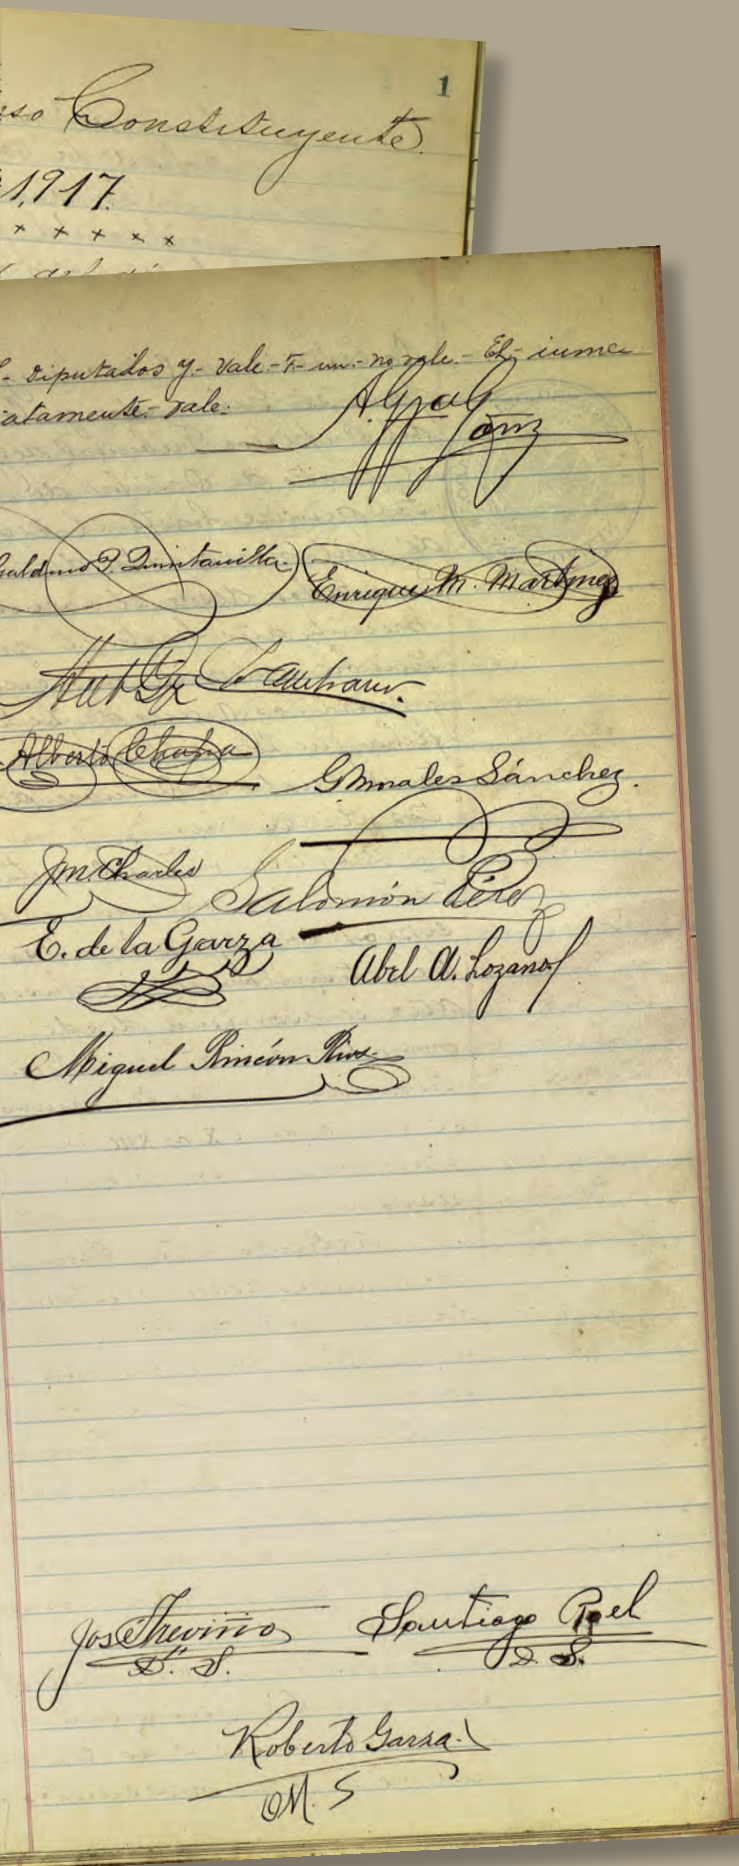 1
Constituyente.
1,917.
x x x x x
Diputados y- vale.- T- un- no vale.- El- inme
atamente- vale.
Galdino P. Quintanilla
Enrique M. Martínez
Alberto Chapa
G Morales Sánchez.
J. M. Charles
Salomón Pérez
E. de la Garza
Abel A. Lozano
Miguel Rincón Rios
José Treviño
D. S.
Santiago Roel
D. S.
Roberto Garza.
OM. S